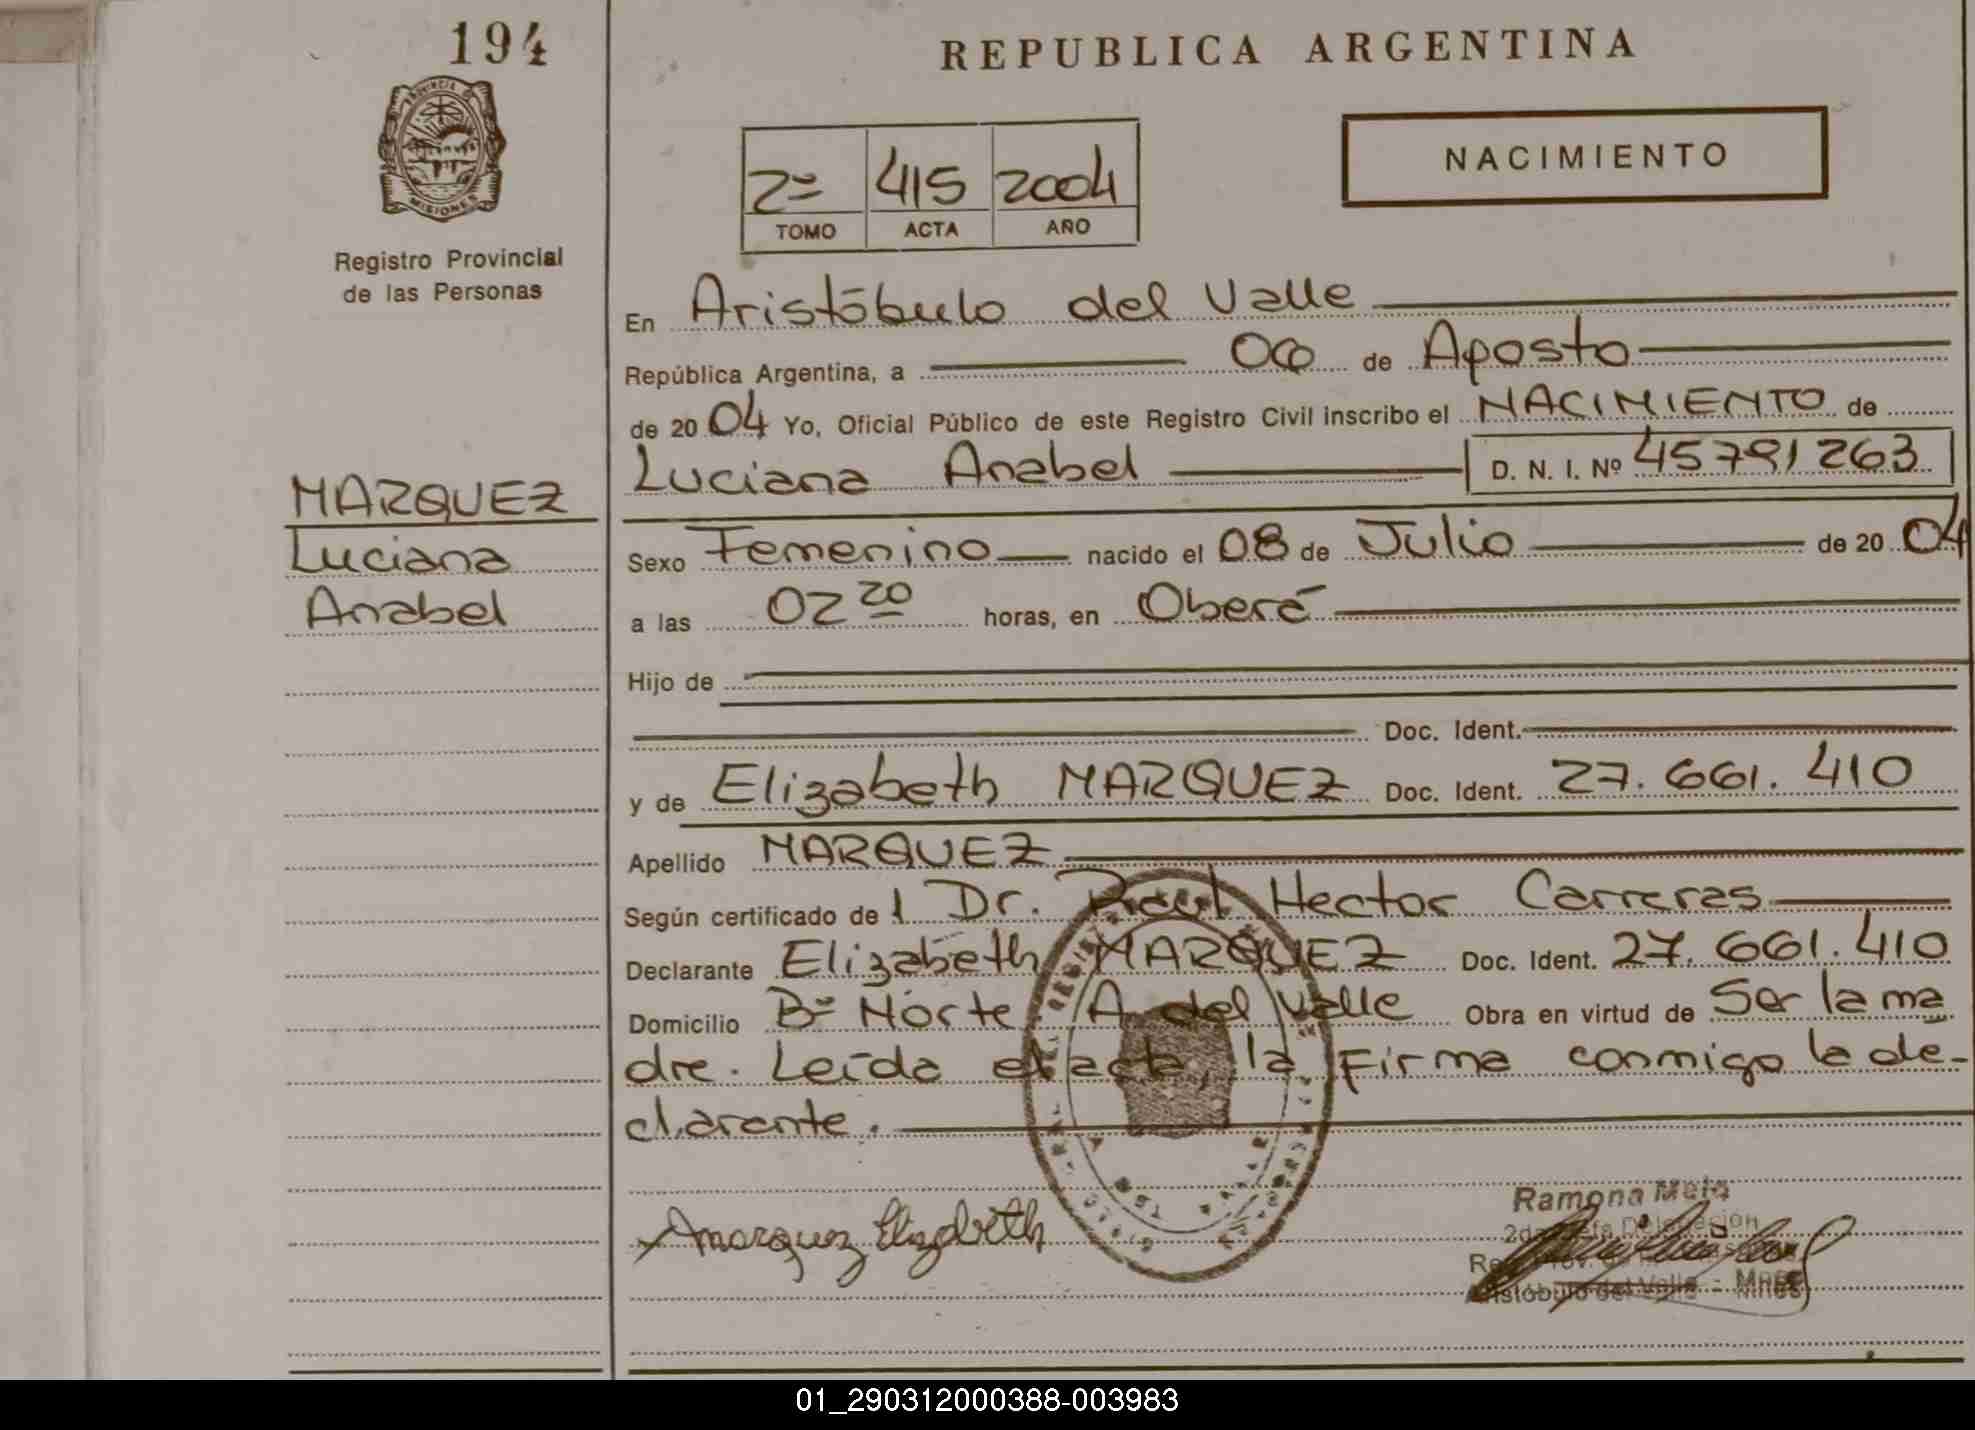 194
REPUBLICA ARGENTINA
NACIMIENTO
PROVINCIA DE
MISIONES
Registro Provincial
de las Personas
2º 415 2004
TOMO ACTA AÑO
En Aristóbulo del Valle
República Argentina, a de Agosto
de 2004 Yo, Oficial Público de este Registro Civil inscribo el NACIMIENTO de
Luciana Anabel D. N. I. Nº 45791263
MARQUEZ
Luciana
Anabel
Sexo Femenino nacido el 08 de Julio de 2004
a las 02 20 horas, en Oberá
Hijo de
Doc. Ident.
y de Elizabeth MARQUEZ Doc. Ident. 27.661.410
Apellido MARQUEZ
Según certificado de l Dr. Raúl Hector Carreras
Declarante Elizabeth MARQUEZ Doc. Ident. 27.661.410
Domicilio Bº Norte A. del Valle Obra en virtud de Ser la ma
dre. Leída el acta, la Firma conmigo la de-
clarante.
Marquez Elizabeth
Ramona Melo
Aristóbulo del Valle - Mnes
01_290312000388-003983